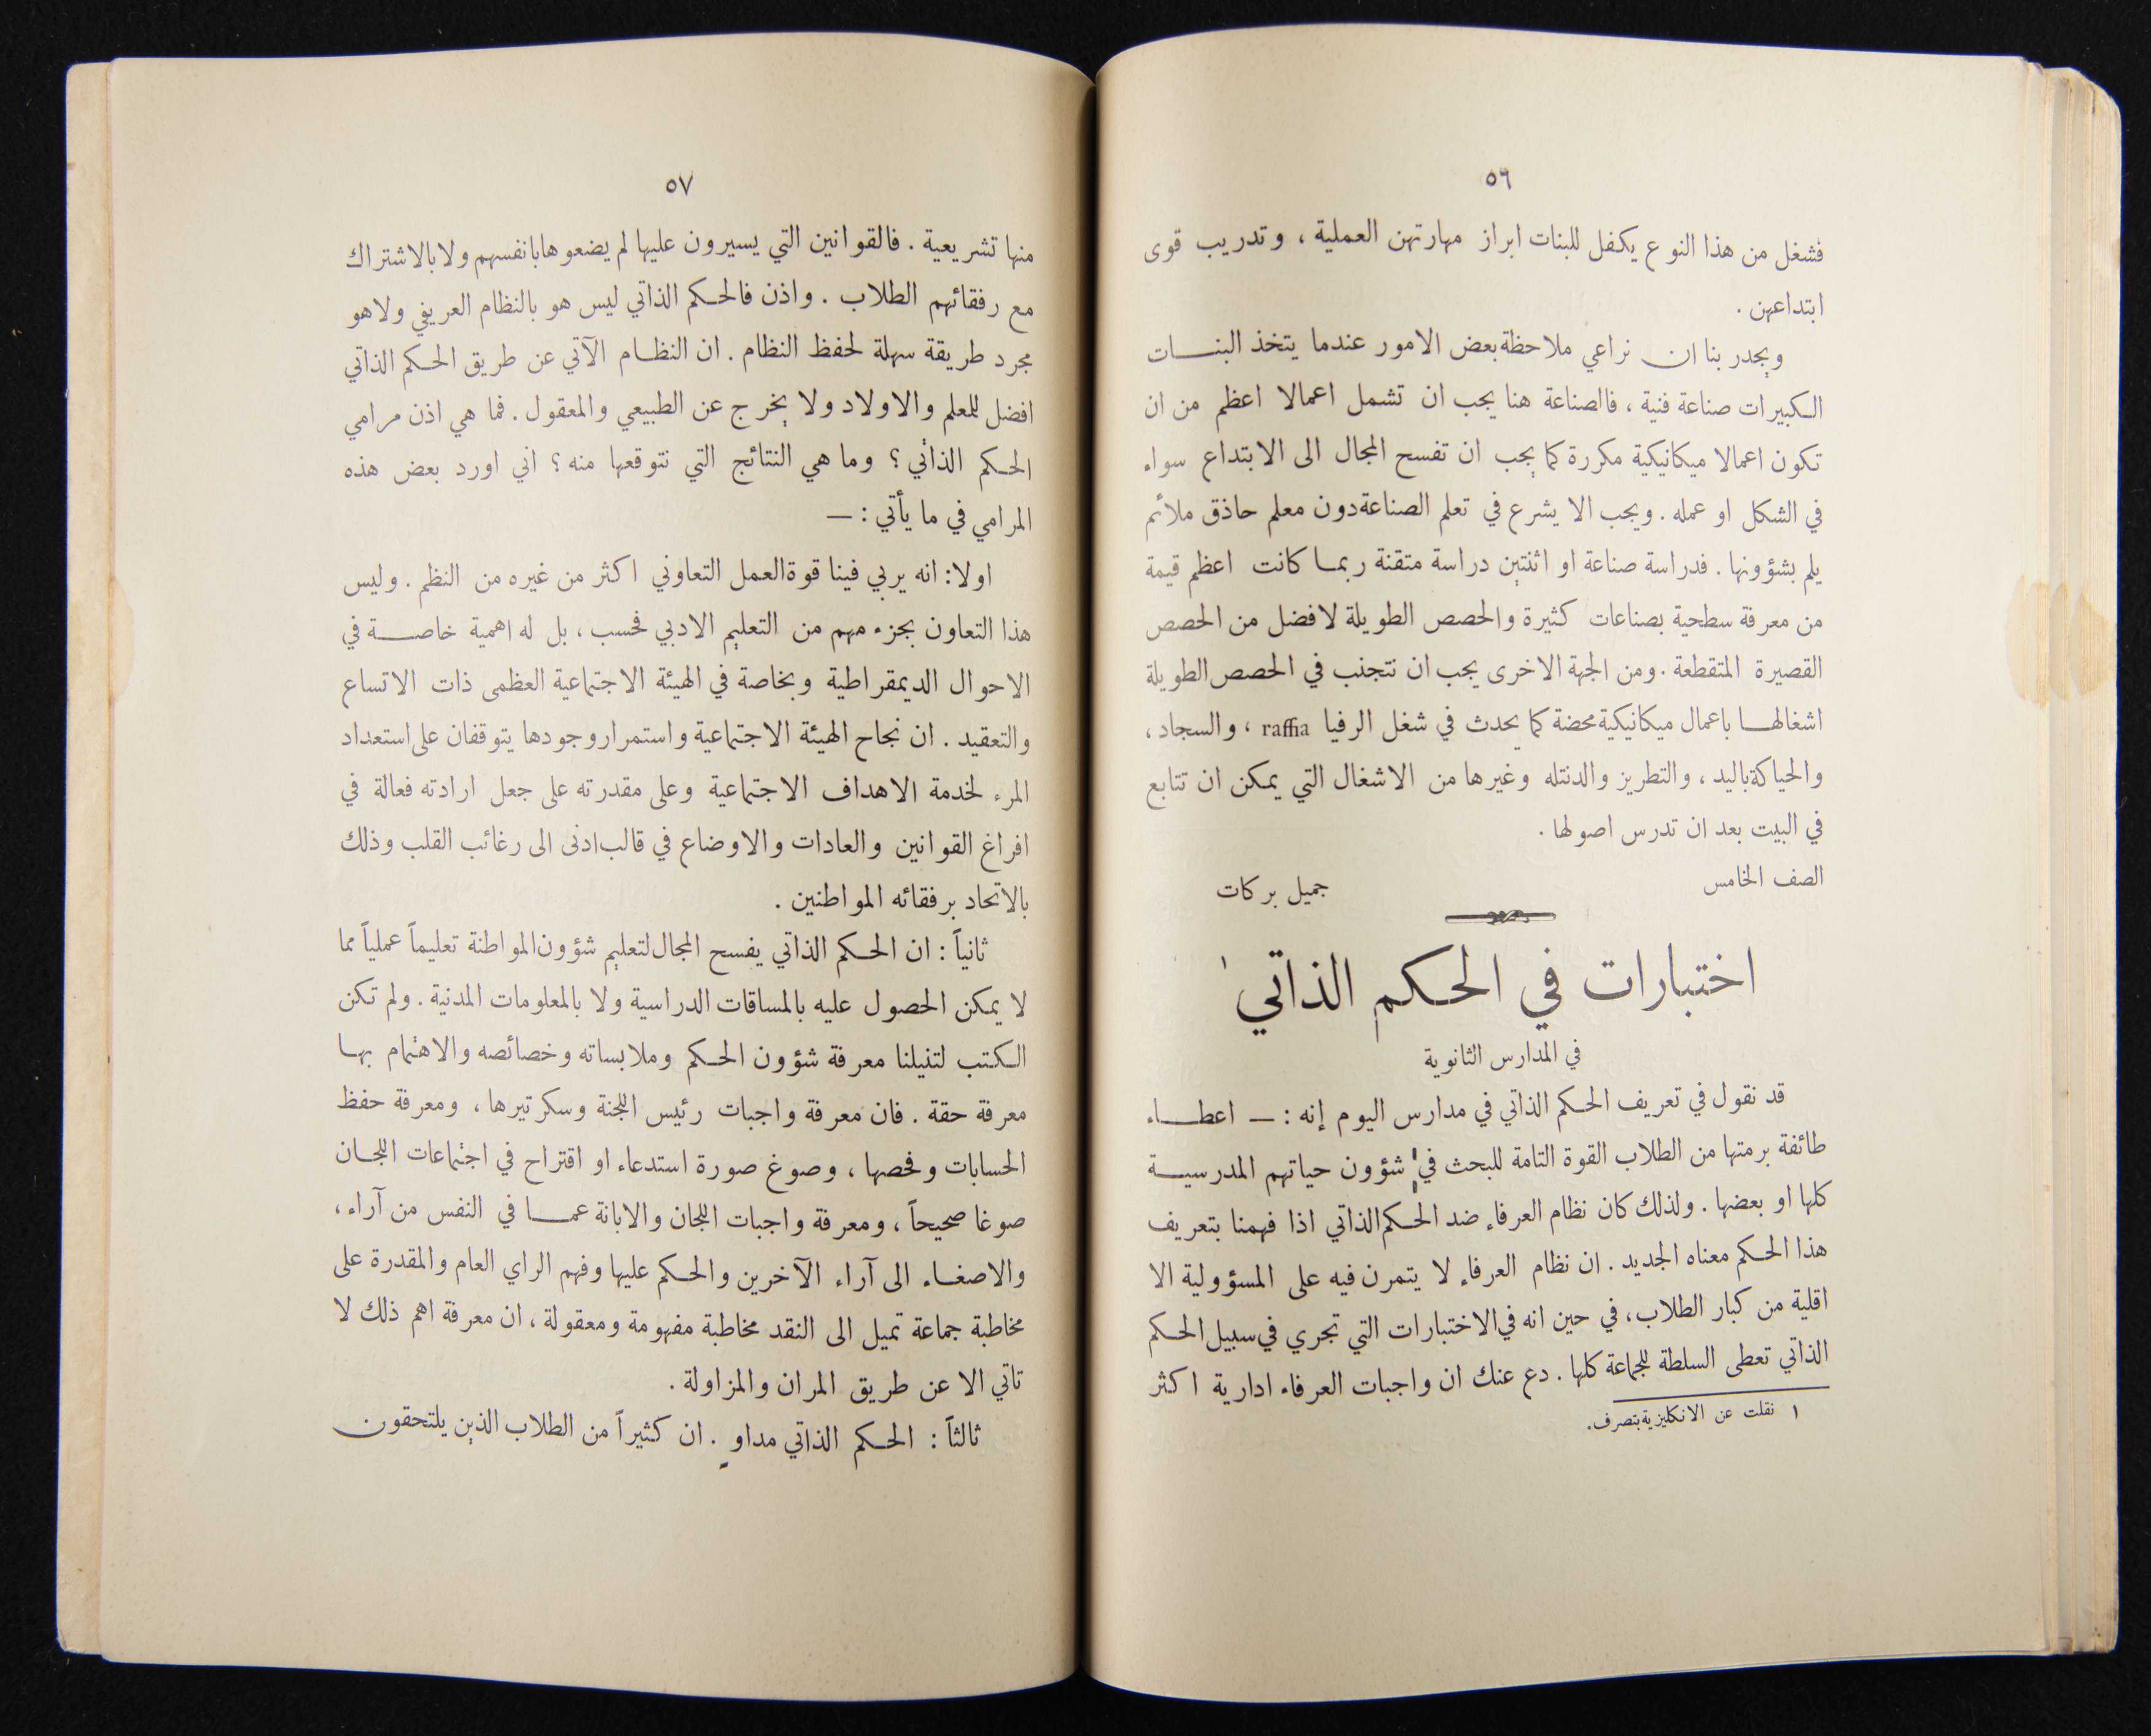 ٥٦
فشغل من هذا النوع يكفل للبنات ابراز مهارتهن العملية ، وتدريب قوى
ابتداعهن .
ويجدر بنا ان نراعي ملاحظة بعض الامور عندما يتخذ البنات
الكبيرات صناعة فنية ، فالصناعة هنا يجب ان تشمل اعمالا اعظم من ان
تكون اعمالا ميكانيكية مكررة كما يجب ان تفسح المجال الى الابتداع سواء
في الشكل او عمله . ويجب الا يشرع في تعلم الصناعة دون معلم حاذق ملائم
يلم بشؤونها . فدراسة صناعة او اثنتين دراسة متقنة ربما كانت اعظم قيمة
من معرفة سطحية بصناعات كثيرة والحصص الطويلة لافضل من الحصص
القصيرة المتقطعة . ومن الجهة الاخرى يجب ان نتجنب في الحصص الطويلة
اشغالها باعمال ميكانيكية محضة كما يحدث في شغل الرفيا raffia ، والسجاد ،
والحياكة باليد ، والتطريز والدنتله وغيرها من الاشغال التي يمكن ان تتابع
في البيت بعد ان تدرس اصولها .
الصف الخامس جميل بركات
اختبارات في الحكم الذاتي ١
في المدارس الثانوية
قد نقول في تعريف الحكم الذاتي في مدارس اليوم إنه : — اعطاء
طائفة برمتها من الطلاب القوة التامة للبحث في شؤون حياتهم المدرسية
كلها او بعضها . ولذلك كان نظام العرفاء ضد الحكم الذاتي اذا فهمنا بتعريف
هذا الحكم معناه الجديد . ان نظام العرفاء لا يتمرن فيه على المسؤولية الا
اقلية من كبار الطلاب ، في حين انه في الاختبارات التي تجري في سبيل الحكم
الذاتي تعطى السلطة للجماعة كلها . دع عنك ان واجبات العرفاء ادارية اكثر
١ نقلت عن الانكليزية بتصرف .
٥٧
منها تشريعية . فالقوانين التي يسيرون عليها لم يضعوها بانفسهم ولا بالاشتراك
مع رفقائهم الطلاب . واذن فالحكم الذاتي ليس هو بالنظام العريفي ولا هو
مجرد طريقة سهلة لحفظ النظام . ان النظام الآتي عن طريق الحكم الذاتي
افضل للمعلم والاولاد ولا يخرج عن الطبيعي والمعقول . فما هي اذن مرامي
الحكم الذاتي ؟ وما هي النتائج التي نتوقعها منه ؟ اني اورد بعض هذه
المرامي في ما يأتي : —
اولا : انه يربي فينا قوة العمل التعاوني اكثر من غيره من النظم . وليس
هذا التعاون بجزء مهم من التعليم الادبي فحسب ، بل له اهمية خاصة في
الاحوال الديمقراطية وبخاصة في الهيئة الاجتماعية العظمى ذات الاتساع
والتعقيد . ان نجاح الهيئة الاجتماعية واستمرار وجودها يتوقفان على استعداد
المرء لخدمة الاهداف الاجتماعية وعلى مقدرته على جعل ارادته فعالة في
افراغ القوانين والعادات والاوضاع في قالب ادنى الى رغائب القلب وذلك
بالاتحاد برفقائه المواطنين .
ثانياً : ان الحكم الذاتي يفسح المجال لتعليم شؤون المواطنة تعليماً عملياً مما
لا يمكن الحصول عليه بالمساقات الدراسية ولا بالمعلومات المدنية . ولم تكن
الكتب لتنيلنا معرفة شؤون الحكم وملابساته وخصائصه والاهتمام بها
معرفة حقة . فان معرفة واجبات رئيس اللجنة وسكرتيرها ، ومعرفة حفظ
الحسابات وفحصها ، وصوغ صورة استدعاء او اقتراح في اجتماعات اللجان
صوغا صحيحاً ، ومعرفة واجبات اللجان والابانة عما في النفس من آراء ،
والاصغاء الى آراء الآخرين والحكم عليها وفهم الراي العام والمقدرة على
مخاطبة جماعة تميل الى النقد مخاطبة مفهومة ومعقولة ، ان معرفة اهم ذلك لا
تاتي الا عن طريق المران والمزاولة .
ثالثاً : الحكم الذاتي مداوٍ . ان كثيراً من الطلاب الذين يلتحقون